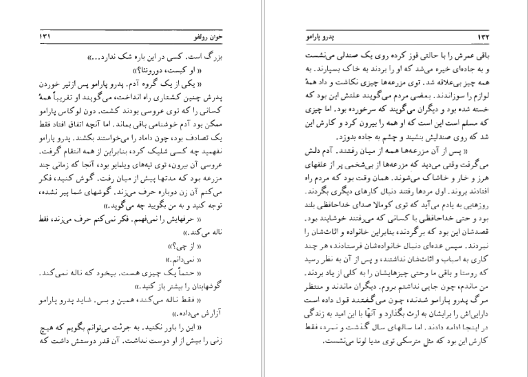 جوان رولفو ۱۳۱
بزرگ است. کسی در این باره شک ندارد...»
« او کیست، دوروتئا؟»
« یکی از یک گروه آدم. پدرو پارامو پس از تیر خوردن
پدرش چنین کشتاری راه انداخت، می‌گویند او تقریباً همهٔ
کسانی را که توی عروسی بودند کشت. دون لوکاس پارامو
ممکن بود آدم خوشنامی باقی بماند. اما آنچه اتفاق افتاد فقط
یک تصادف بود، چون داماد را می‌خواستند بکشند. پدرو پارامو
نفهمید چه کسی شلیک کرد، بنابراین از همه انتقام گرفت.
عروسی آن بیرون، توی تپه‌های ویلمایو بود، آنجا که زمانی چند
مزرعه بود که مدتها پیش از میان رفت. گوش کنید، فکر
می‌کنم آن زن دوباره حرف می‌زند. گوشهای شما پیر نشده،
توجه کنید و به من بگویید چه می‌گوید.»
« حرفهایش را نمی‌فهمم. فکر نمی‌کنم حرف می‌زند، فقط
ناله می‌کند.»
« از چی؟»
« نمی‌دانم.»
« حتماً یک چیزی هست. بیخود که ناله نمی‌کند.
گوشهایتان را بیشتر باز کنید.»
« فقط ناله می‌کند، همین و بس. شاید پدرو پارامو
آزارش می‌داده.»
« این را باور نکنید. به جرئت می‌توانم بگویم که هیچ
زنی را بیش از او دوست نداشت. آن قدر دوستش داشت که
۱۳۲ پدرو پارامو
باقی عمرش را با حالتی قوز کرده روی یک صندلی می‌نشست
و به جاده‌ای خیره می‌شد که او را بردند به خاک بسپارند. به
همه چیز بی‌علاقه شد. توی مزرعه‌ها چیزی نکاشت و داد همهٔ
لوازم را سوزاندند. بعضی مردم می‌گویند علتش این بود که
خسته شده بود و دیگران می‌گویند که سرخورده بود. اما چیزی
که مسلم است این است که او همه را بیرون کرد و کارش این
شد که روی صندلیش بنشیند و چشم به جاده بدوزد.
« پس از آن مزرعه‌ها همه از میان رفتند. آدم دلش
می‌گرفت وقتی می‌دید که مزرعه‌ها از بی‌شخمی پر از علفهای
هرز و خار و خاشاک می‌شوند. همان وقت بود که مردم راه
افتادند بروند. اول مردها رفتند دنبال کارهای دیگری بگردند.
روزهایی به یادم می‌آید که توی کومالا صدای خداحافظی بلند
بود و حتی خداحافظی با کسانی که می‌رفتند خوشایند بود.
قصدشان این بود که برگردند، بنابراین خانواده و اثاث‌شان را
نبردند. سپس عده‌ای دنبال خانواده‌شان فرستادند، هر چند
کاری به اسباب و اثاث‌شان نداشتند، و پس از آن به نظر رسید
که روستا و باقی ما وحتی چیزهایشان را به کلی از یاد بردند.
من ماندم، چون جایی نداشتم بروم. دیگران ماندند و منتظر
مرگ پدرو پارامو شدند، چون می‌گفتند قول داده است
دارایی‌اش را برایشان به ارث بگذارد و آنها با این امید به زندگی
در اینجا ادامه دادند. اما سالهای سال گذشت و نمرد، فقط
کارش این بود که مثل مترسکی توی مدیا لونا می‌نشست.